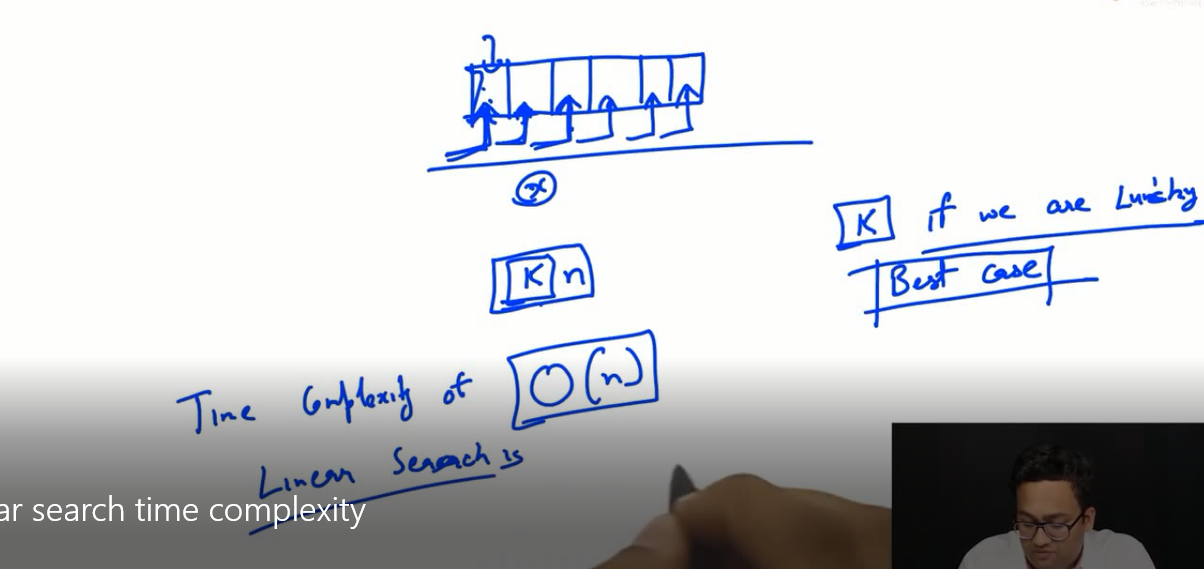 7
x
K if we are Lucky
K n
Best case
O(n)
Time Complexity of
Linear Search is
ar search time complexity